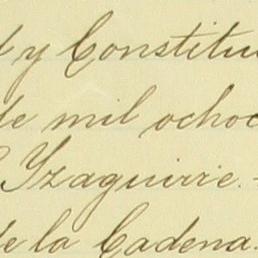 d y Constitu
de mil ochoc
Yzaguirre.-
de la Cadena.